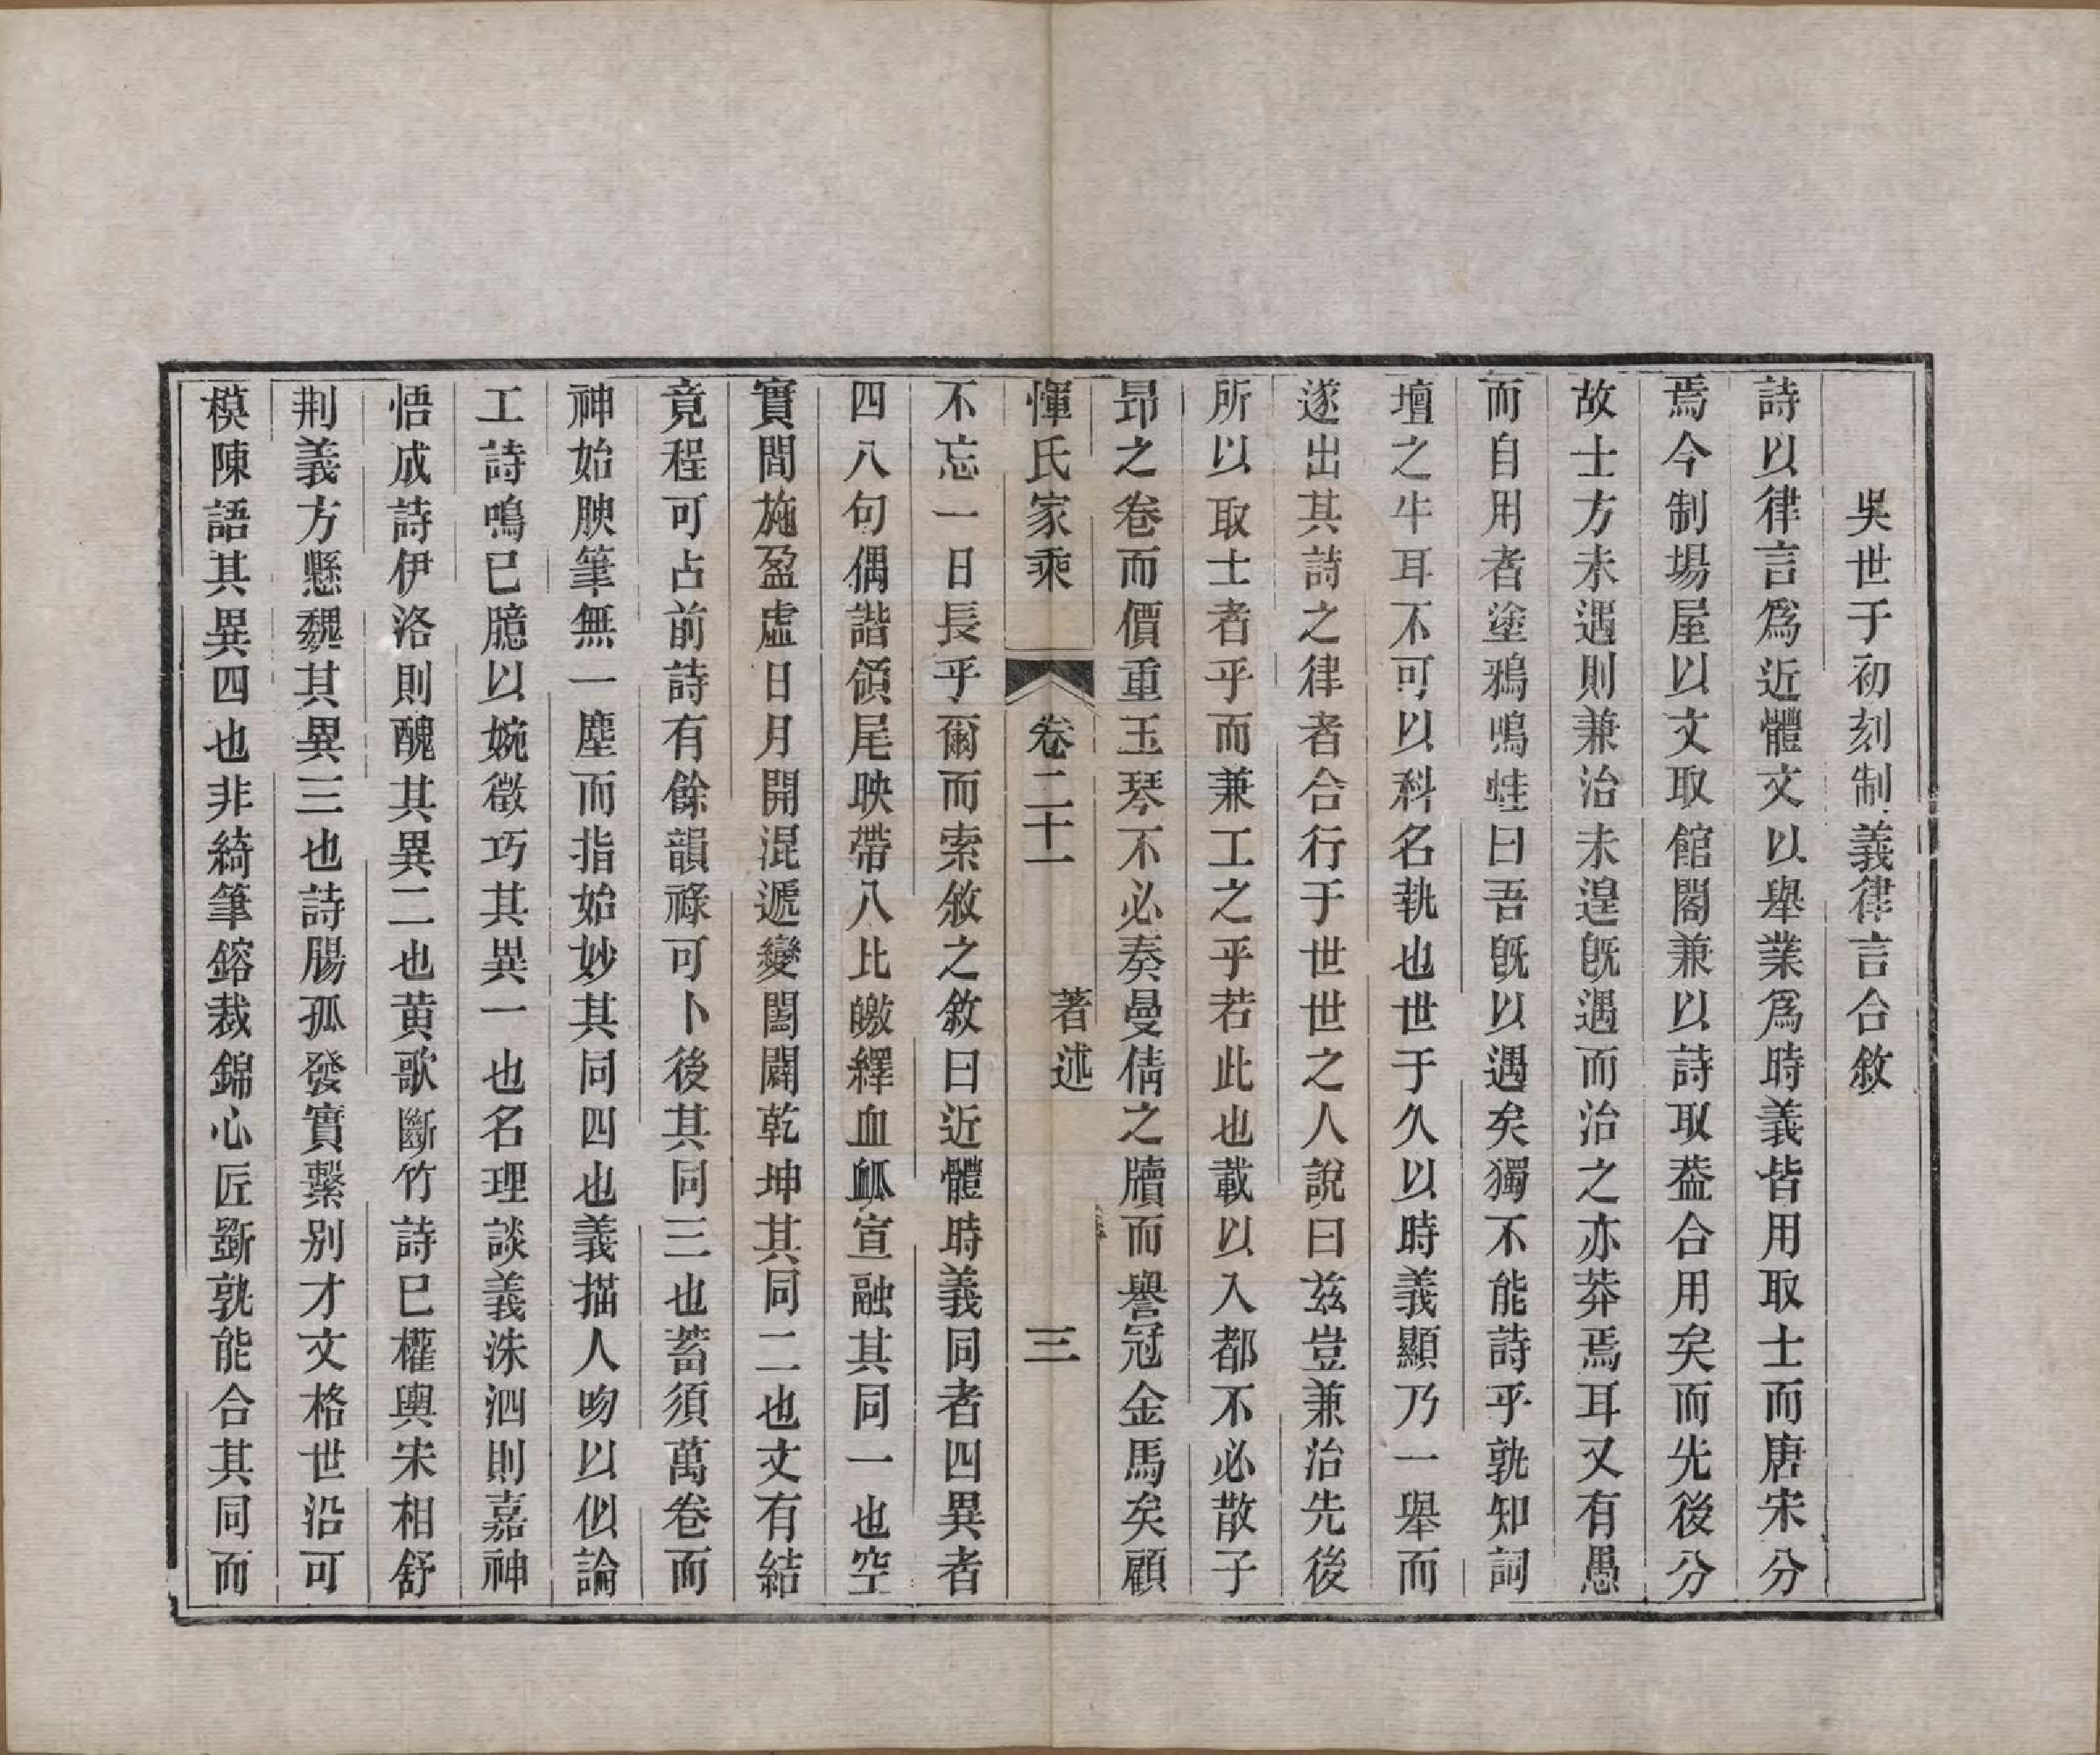 吳世于初刻制義律言合敘
詩以律言爲近體文以舉業爲時義皆用取士而唐宋分
焉今制場屋以文取館閣兼以詩取葢合用矣而先後分
故士方未遇則兼治未遑旣遇而治之亦莽焉耳又有愚
而自用者塗鴉鳴蛙曰吾旣以遇矣獨不能詩乎孰知詞
壇之牛耳不可以科名執也世于久以時義顯乃一舉而
遂出其詩之律者合行于世世之人說曰兹豈兼治先後
所以取士者乎而兼工之乎若此也載以入都不必散子
昻之卷而價重玉琴不必奏曼倩之牘而譽冠金馬矣顧
惲氏家乘 卷二十一 著述 三
不忘一日長乎爾而索敘之敘曰近體時義同者四異者
四八句偶諧領尾映帶八比皦繹血衇宣融其同一也空
實間施盈虛日月開混遞變闔闢乾坤其同二也文有結
竟程可占前詩有餘韻祿可卜後其同三也蓄須萬卷而
神始腴筆無一塵而指始妙其同四也義描人吻以似論
工詩鳴已臆以婉徵巧其異一也名理談義洙泗則嘉神
悟成詩伊洛則醜其異二也黄歌斷竹詩巳權輿宋相舒
荆義方懸魏其異三也詩腸孤發實繫別才文格世沿可
模陳語其異四也非綺筆鎔裁錦心匠斵孰能合其同而